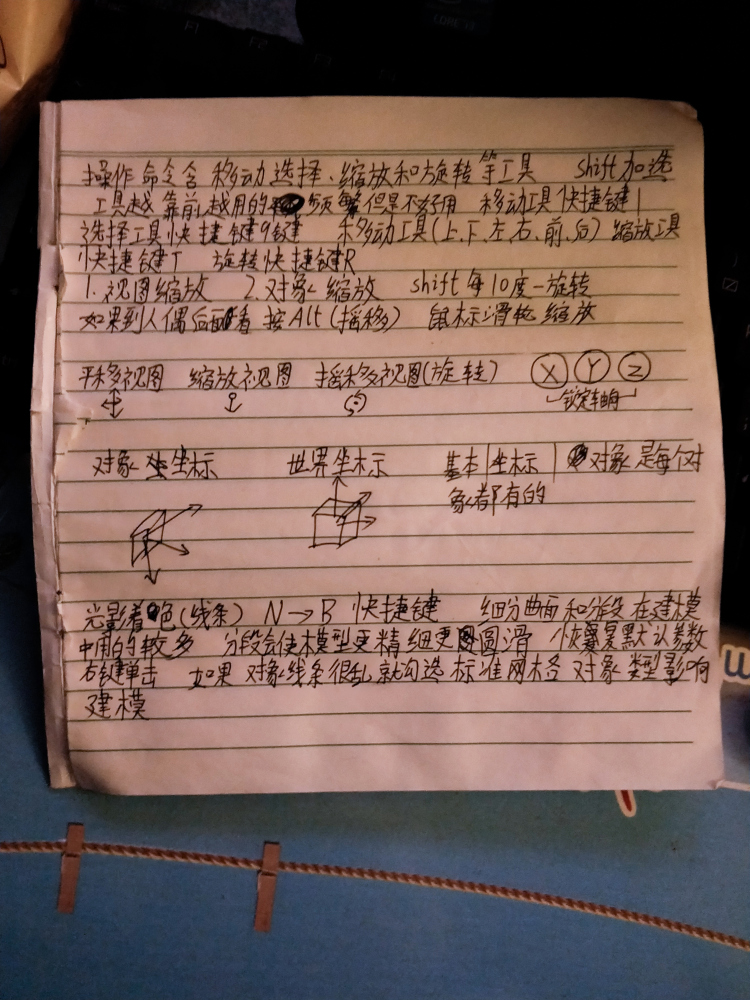 操作命令含 移动选择、缩放和旋转等工具 shift加选
工具越靠前越用的频繁但是不好用 移动工具快捷键
选择工具快捷键9键 移动工具(上、下、左、右、前、后) 缩放工具
快捷键T 旋转快捷键R
1.视图缩放 2.对象缩放 shift每10度一旋转
如果到人偶后面看 按Alt(摇移) 鼠标滑轮缩放
平移视图 缩放视图 摇移视图(旋转) X Y Z
锁定轴向
对象坐标 世界坐标 基本坐标 对象是每个对
象都有的
光影着色(线条) N→B 快捷键 细分曲面和分段在建模
中用的较多 分段会使模型更精细更圆滑 恢复默认参数
右键单击 如果对象线条很乱就勾选标准网格 对象类型影响
建模